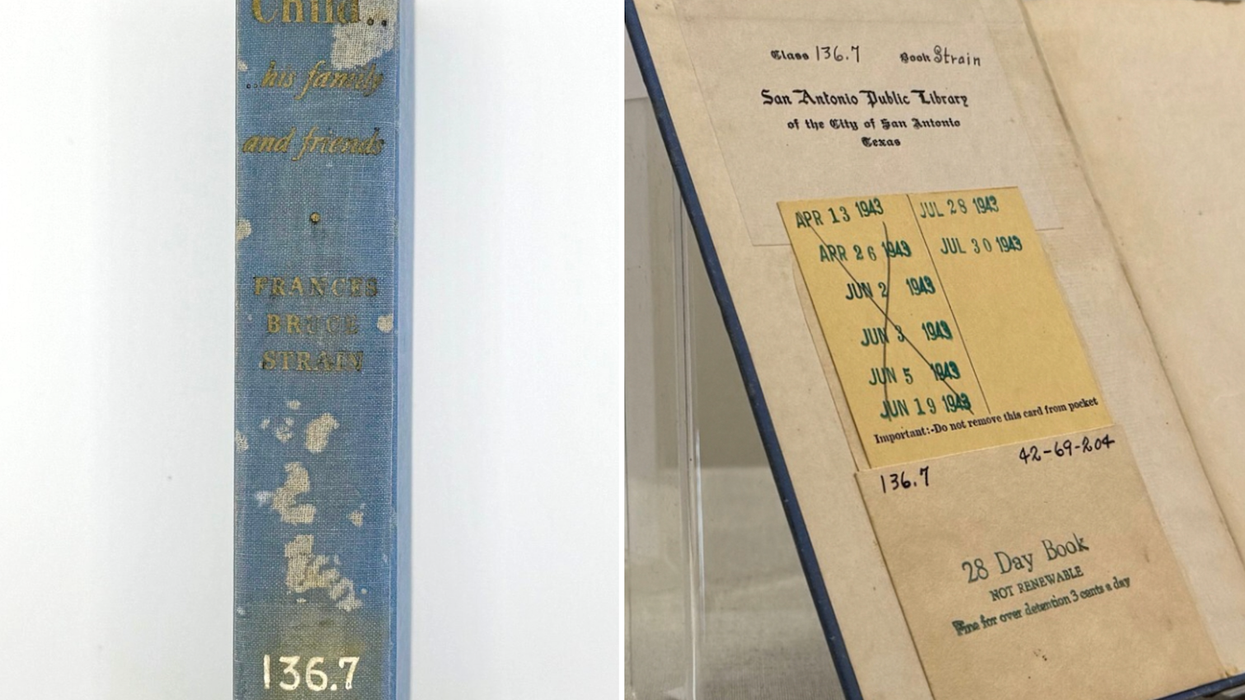 Child..
..his family
and friends
FRANCES
BRUCE
STRAIN
136.7
Class 136.7 Book Strain
San Antonio Public Library
of the City of San Antonio
Texas
APR 13 1943
APR 26 1943
JUN 2 1943
JUN 3 1943
JUN 5 1943
JUN 19 1943
JUL 28 1943
JUL 30 1943
Important:-Do not remove this card from pocket
136.7
42-69-204
28 Day Book
NOT RENEWABLE
Fine for over detention 3 cents a day